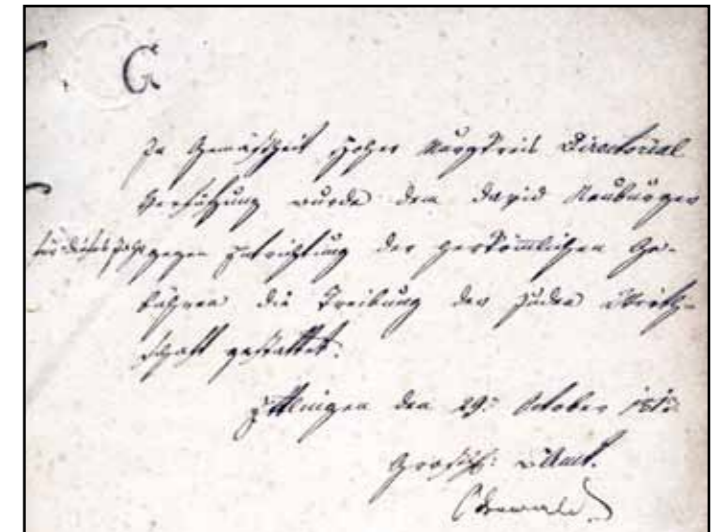 G
In Gemäßheit hoher Murgkreis Directorial
Verfügung wurde dem David Neuburger
für dieses Jahr gegen Entrichtung der herkömmlichen Ge-
bühren die Treibung der Juden Wirth-
schaft gestattet.
Ettlingen den 29: October
Großh: Amt.